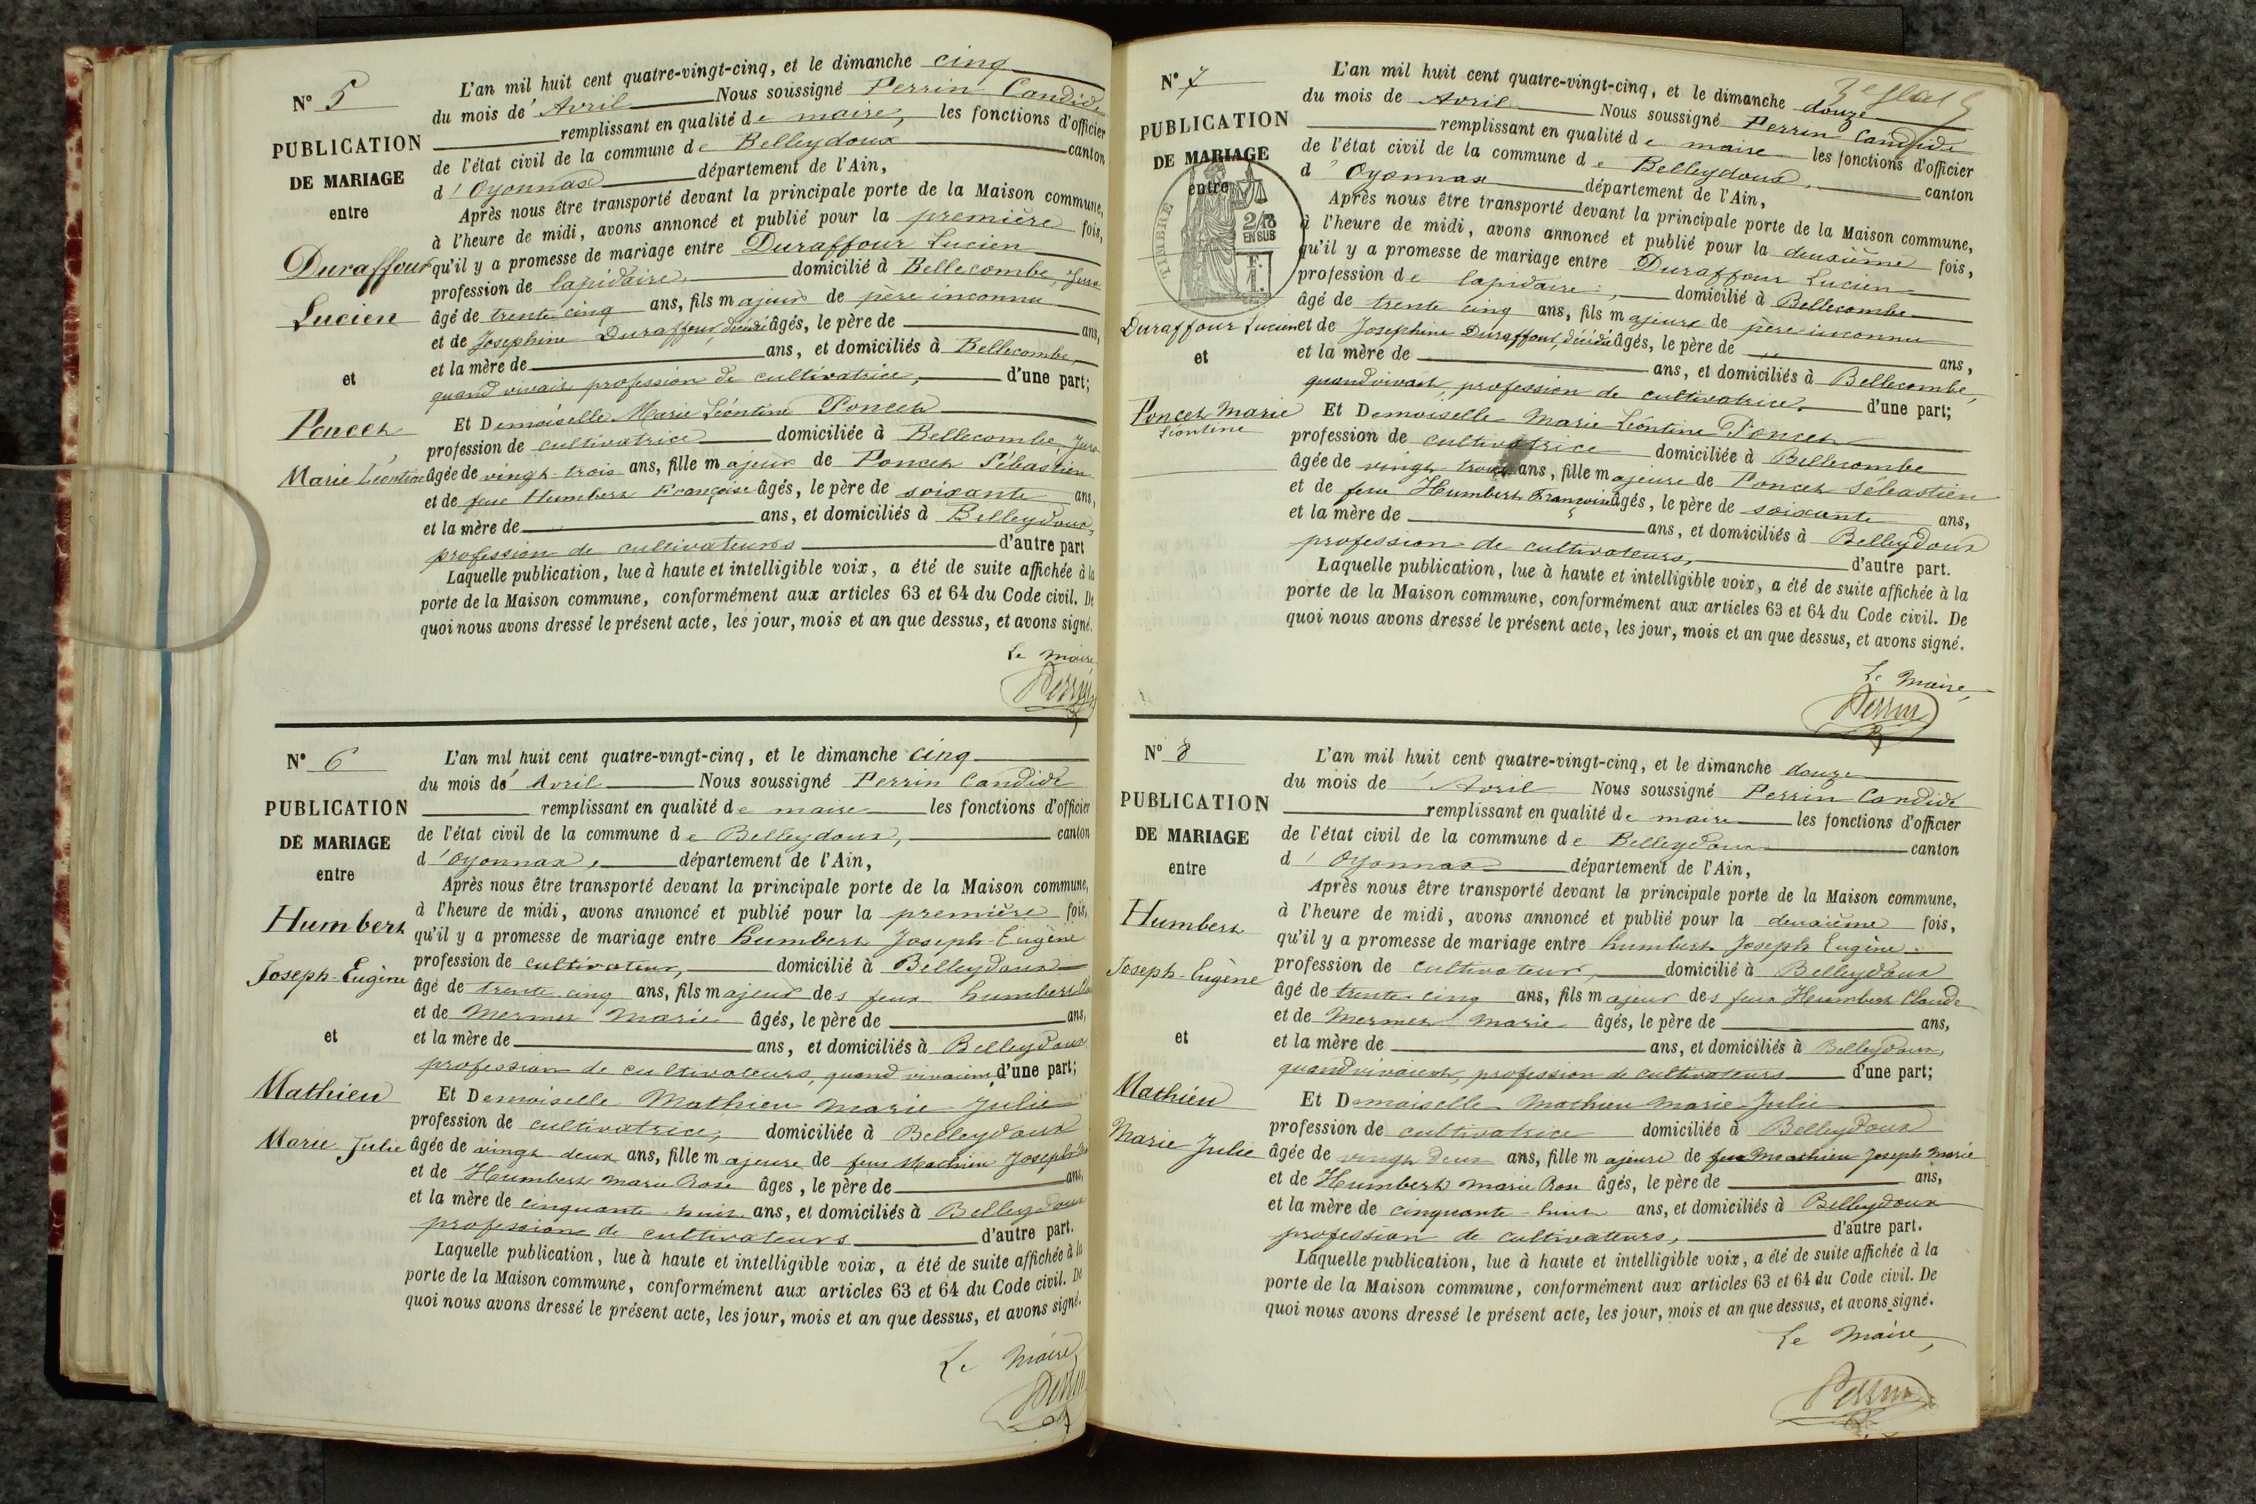 N° 5
PUBLICATION
DE MARIAGE
entre
Duraffour
Lucien
et
Poncet
Marie Léontine
L'an mil huit cent quatre-vingt-cinq, et le dimanche cinq
du mois de Avril Nous soussigné Perrin Candide
remplissant en qualité de maire, les fonctions d'officier
de l'état civil de la commune de Belleydoux canton
d'Oyonnax département de l'Ain,
Après nous être transporté devant la principale porte de la Maison commune,
à l'heure de midi, avons annoncé et publié pour la première fois,
qu'il y a promesse de mariage entre Duraffour Lucien
profession de lapidaire, domicilié à Bellecombe, Jura
âgé de trente cinq ans, fils majeur de père inconnu
et de Josephine Duraffour, décédée âgés, le père de ans,
et la mère de ans, et domiciliés à Bellecombe
quand vivait profession de cultivatrice, d'une part;
Et Demoiselle Marie Léontine Poncet
profession de cultivatrice domiciliée à Bellecombe Jura
âgée de vingt-trois ans, fille majeure de Poncet Sébastien
et de feue Humbert Françoise âgés, le père de soixante ans,
et la mère de ans, et domiciliés à Belleydoux,
profession de cultivateurs d'autre part
Laquelle publication, lue à haute et intelligible voix, a été de suite affichée à la
porte de la Maison commune, conformément aux articles 63 et 64 du Code civil. De
quoi nous avons dressé le présent acte, les jour, mois et an que dessus, et avons signé.
Le maire,
Perrin
N° 6
PUBLICATION
DE MARIAGE
entre
Humbert
Joseph-Eugène
et
Mathieu
Marie Julie
L'an mil huit cent quatre-vingt-cinq, et le dimanche cinq
du mois de Avril Nous soussigné Perrin Candide
remplissant en qualité de maire les fonctions d'officier
de l'état civil de la commune de Belleydoux, canton
d'Oyonnax, département de l'Ain,
Après nous être transporté devant la principale porte de la Maison commune,
à l'heure de midi, avons annoncé et publié pour la première fois,
qu'il y a promesse de mariage entre humbert Joseph-Eugène
profession de cultivateur, domicilié à Belleydoux
âgé de trente cinq ans, fils majeur des feux humbert
et de Mermet Marie âgés, le père de ans,
et la mère de ans, et domiciliés à Belleydoux
profession de cultivateurs, quand vivaient, d'une part;
Et Demoiselle Mathieu Marie-Julie
profession de cultivatrice, domiciliée à Belleydoux
âgée de vingt-deux ans, fille majeure de feu Mathieu Joseph
et de Humbert Marie Rose âges, le père de ans,
et la mère de cinquante-huit ans, et domiciliés à Belleydoux
profession de cultivateurs d'autre part.
Laquelle publication, lue à haute et intelligible voix, a été de suite affichée à la
porte de la Maison commune, conformément aux articles 63 et 64 du Code civil. De
quoi nous avons dressé le présent acte, les jour, mois et an que dessus, et avons signé.
Le Maire,
Perrin
N° 7
PUBLICATION
DE MARIAGE
entre
TIMBRE
2/10
EN SUS
Duraffour Lucien
et
Poncet Marie
Léontine
L'an mil huit cent quatre-vingt-cinq, et le dimanche douze
du mois de Avril Nous soussigné Perrin Candide
remplissant en qualité de maire les fonctions d'officier
de l'état civil de la commune de Belleydoux, canton
d'Oyonnax département de l'Ain,
Après nous être transporté devant la principale porte de la Maison commune,
à l'heure de midi, avons annoncé et publié pour la deuxième fois,
qu'il y a promesse de mariage entre Duraffour Lucien
profession de lapidaire, domicilié à Bellecombe
âgé de trente cinq ans, fils majeure de père inconnu
et de Josephine Duraffour, décédée âgés, le père de ans,
et la mère de ans, et domiciliés à Bellecombe,
quand vivait, profession de cultivatrice, d'une part;
Et Demoiselle Marie Léontine Poncet
profession de cultivatrice domiciliée à Bellecombe
âgée de vingt-trois ans, fille majeure de Poncet Sébastien
et de feue Humbert Françoise âgés, le père de soixante ans,
et la mère de ans, et domiciliés à Belleydoux
profession de cultivateurs, d'autre part.
Laquelle publication, lue à haute et intelligible voix, a été de suite affichée à la
porte de la Maison commune, conformément aux articles 63 et 64 du Code civil. De
quoi nous avons dressé le présent acte, les jour, mois et an que dessus, et avons signé.
Le Maire,
Perrin
N° 8
PUBLICATION
DE MARIAGE
entre
Humbert
Joseph-Eugène
et
Mathieu
Marie Julie
L'an mil huit cent quatre-vingt-cinq, et le dimanche douze
du mois de Avril Nous soussigné Perrin Candide
remplissant en qualité de maire les fonctions d'officier
de l'état civil de la commune de Belleydoux canton
d'Oyonnax département de l'Ain,
Après nous être transporté devant la principale porte de la Maison commune,
à l'heure de midi, avons annoncé et publié pour la deuxième fois,
qu'il y a promesse de mariage entre humbert Joseph Eugène
profession de cultivateur, domicilié à Belleydoux
âgé de trente-cinq ans, fils majeur des feux Humbert Claude
et de Mermet Marie âgés, le père de ans,
et la mère de ans, et domiciliés à Belleydoux,
quand vivaient, profession de cultivateurs d'une part;
Et Demoiselle Mathieu Marie-Julie
profession de cultivatrice domiciliée à Belleydoux
âgée de vingt deux ans, fille majeure de feu Mathieu Joseph Marie
et de Humbert Marie Rose âgés, le père de ans,
et la mère de cinquante-huit ans, et domiciliés à Belleydoux
profession de cultivateurs, d'autre part.
Laquelle publication, lue à haute et intelligible voix, a été de suite affichée à la
porte de la Maison commune, conformément aux articles 63 et 64 du Code civil. De
quoi nous avons dressé le présent acte, les jour, mois et an que dessus, et avons signé.
Le Maire,
Perrin